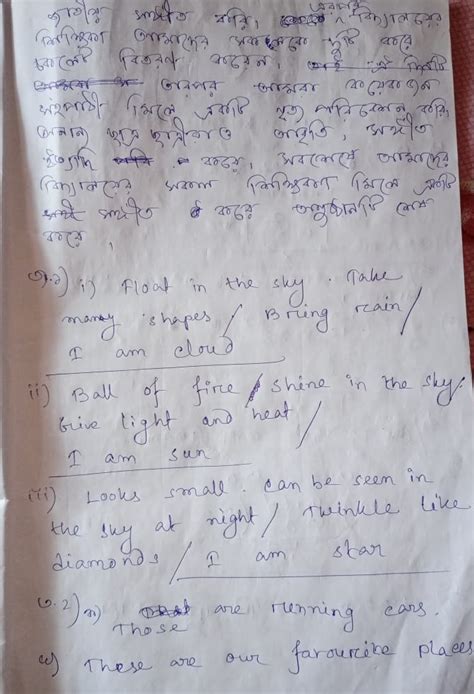 জাতীয় সঙ্গীত করি, এরপর বিদ্যালয়ের
শিক্ষিকা আমাদের সকলকে দুটি করে
চকলেট বিতরণ করেন,
তারপর আমরা কয়েকজন
সহপাঠী মিলে একটি নৃত্য পরিবেশন করি,
অন্যান্য ছাত্র ছাত্রীরাও আবৃত্তি, সঙ্গীত
ইত্যাদি করে, সবশেষে আমাদের
বিদ্যালয়ের সকল শিক্ষিকারা মিলে একটি
সঙ্গীত করে অনুষ্ঠানটি শেষ
করে,
৩.১) i) Float in the sky. Take
many shapes / Bring rain /
I am cloud
ii) Ball of fire / shine in the sky.
Give light and heat /
I am sun
iii) Looks small. can be seen in
the sky at night / Twinkle like
diamonds / I am star
৩.2) ক) Those are running cars.
খ) These are our favourite places